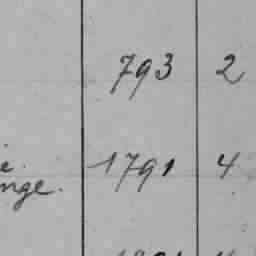 793 2
1791 4
nge.